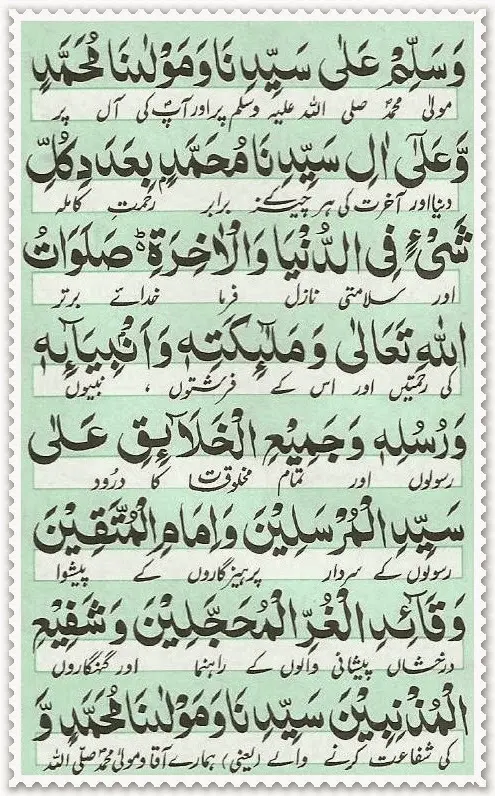 وَسَلِّمْ عَلٰى سَيِّدِنَا وَمَوْلٰىنَا مُحَمَّدٍ
مولیٰ محمدؐ صلی اللہ علیہ وسلم پر اور آپؐ کی آل پر
وَّعَلٰٓى اٰلِ سَيِّدِنَا مُحَمَّدٍ بِعَدَدِ كُلِّ
دنیا اور آخرت کی ہر چیز کے برابر رحمت کاملہ
شَىْءٍ فِى الدُّنْيَا وَالْاٰخِرَةِ ؕ صَلَوَاتُ
اور سلامتی نازل فرما خدائے برتر
اللهِ تَعَالٰى وَمَلٰٓئِكَتِهٖ وَاَنْۢبِيَآئِهٖ
کی رحمتیں اور اس کے فرشتوں ، نبیوں
وَرُسُلِهٖ وَجَمِيْعِ الْخَلَآئِقِ عَلٰى
رسولوں اور تمام مخلوقات کا درود
سَيِّدِ الْمُرْسَلِيْنَ وَاِمَامِ الْمُتَّقِيْنَ
رسولوں کے سردار پرہیزگاروں کے پیشوا
وَقَآئِدِ الْغُرِّ الْمُحَجَّلِيْنَ وَشَفِيْعِ
درخشاں پیشانی والوں کے راہنما اور گنہگاروں
الْمُذْنِبِيْنَ سَيِّدِنَا وَمَوْلٰىنَا مُحَمَّدٍ وَّ
کی شفاعت کرنے والے (یعنی) ہمارے آقا و مولیٰ محمد صلی اللہ